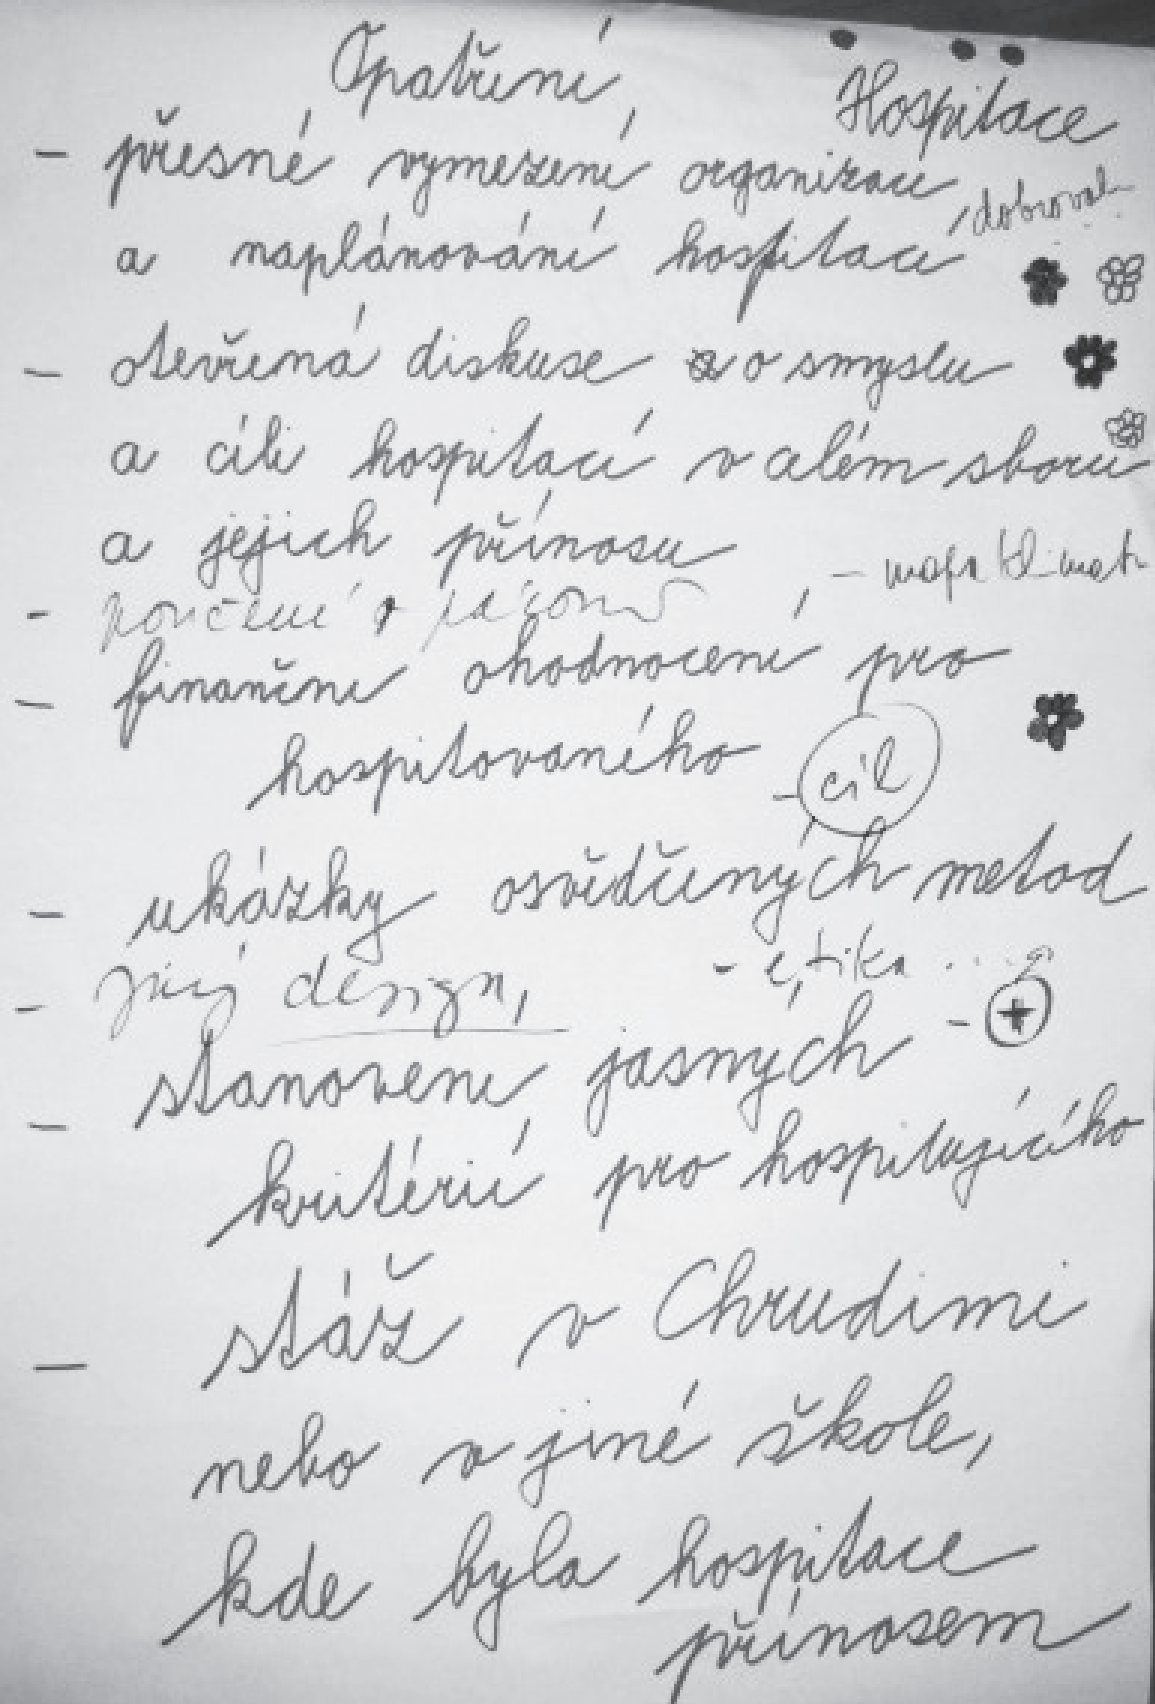 Opatření
Hospitace
- přesné vymezení organizace
, dobrovol.
a naplánování hospitací
- otevřená diskuse o smyslu
a cíli hospitací v celém sboru
a jejich přínosu
- poučení
- finanční ohodnocení pro
hospitovaného
- cíl
- ukázky osvědčených metod
- jiný design,
- etika ...
- +
- stanovení jasných
kritérií pro hospitujícího
- stáž v Chrudimi
nebo v jiné škole,
kde byla hospitace
přínosem